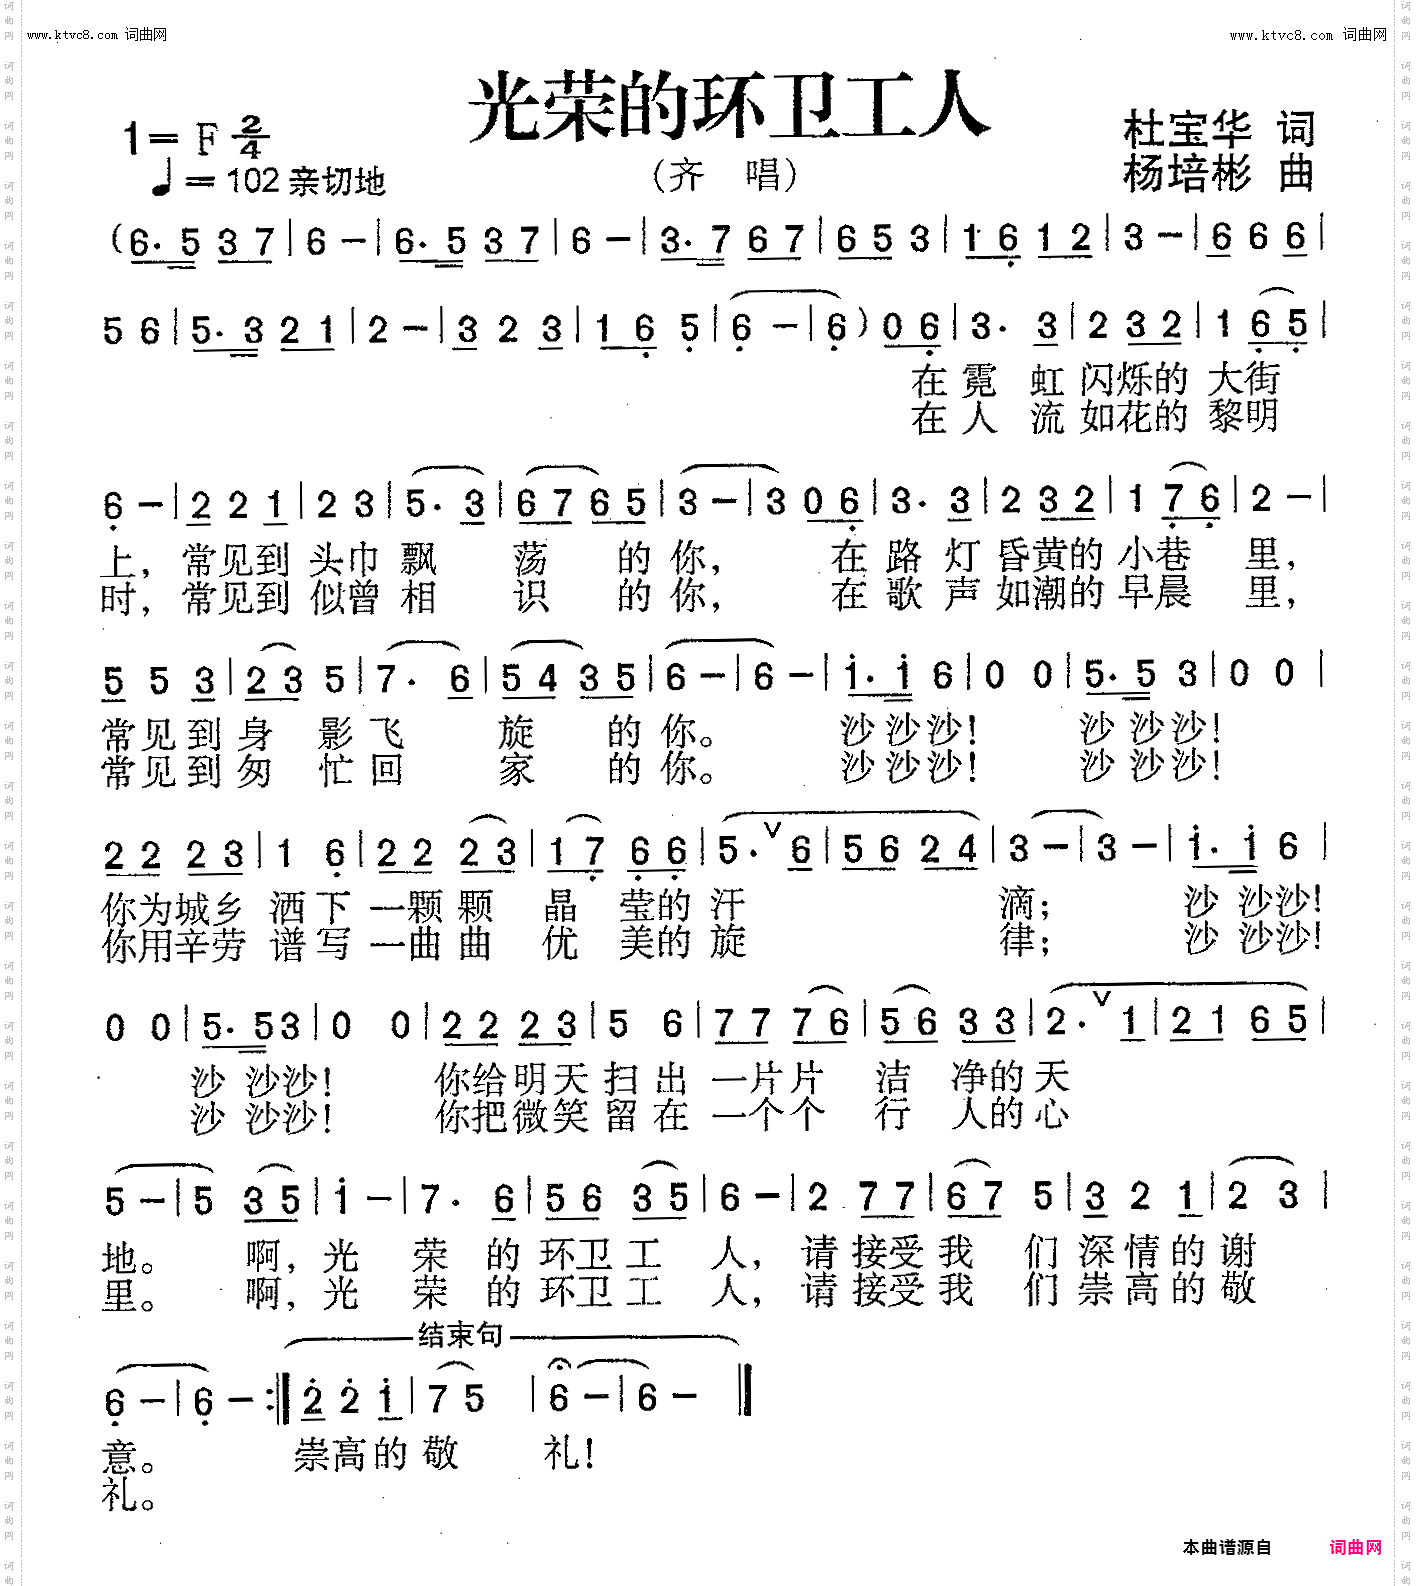 www.ktvc8.com 词曲网
www.ktvc8.com 词曲网
光荣的环卫工人
1= F 2/4
♩= 102 亲切地
(齐 唱)
杜宝华 词
杨培彬 曲
(6. 5 3 7 | 6 - | 6. 5 3 7 | 6 - | 3. 7 6 7 | 6 5 3 | 1 6 1 2 | 3 - | 6 6 6 |
5 6 | 5. 3 2 1 | 2 - | 3 2 3 | 1 6 5 | 6 - | 6 ) 0 6 | 3. 3 | 2 3 2 | 1 6 5 |
在 霓 虹 闪烁的 大街
在 人 流 如花的 黎明
6 - | 2 2 1 | 2 3 | 5. 3 | 6 7 6 5 | 3 - | 3 0 6 | 3. 3 | 2 3 2 | 1 7 6 | 2 - |
上, 常见到 头巾 飘 荡 的 你, 在 路 灯 昏黄的 小巷 里,
时, 常见到 似曾 相 识 的 你, 在 歌 声 如潮的 早晨 里,
5 5 3 | 2 3 5 | 7. 6 | 5 4 3 5 | 6 - | 6 - | i. i 6 | 0 0 | 5. 5 3 | 0 0 |
常见到 身 影 飞 旋 的 你。 沙 沙沙! 沙 沙沙!
常见到 匆 忙 回 家 的 你。 沙 沙沙! 沙 沙沙!
2 2 2 3 | 1 6 | 2 2 2 3 | 1 7 6 6 | 5. ∨ 6 | 5 6 2 4 | 3 - | 3 - | i. i 6 |
你为城乡 洒 下 一颗 颗 晶 莹的 汗 滴; 沙 沙沙!
你用辛劳 谱 写 一曲 曲 优 美的 旋 律; 沙 沙沙!
0 0 | 5. 5 3 | 0 0 | 2 2 2 3 | 5 6 | 7 7 7 6 | 5 6 3 3 | 2. ∨ 1 | 2 1 6 5 |
沙 沙沙! 你给明天 扫 出 一片片 洁 净的 天
沙 沙沙! 你把微笑 留 在 一个个 行 人的 心
5 - | 5 3 5 | i - | 7. 6 | 5 6 3 5 | 6 - | 2 7 7 | 6 7 5 | 3 2 1 | 2 3 |
地。 啊, 光 荣 的 环卫 工 人, 请 接受 我 们 深 情 的 谢
里。 啊, 光 荣 的 环卫 工 人, 请 接受 我 们 崇 高 的 敬
结束句
6 - | 6 - :‖ 2 2 i | 7 5 | 6 - | 6 - ‖
意。 崇高的 敬 礼!
礼。
本曲谱源自 词曲网